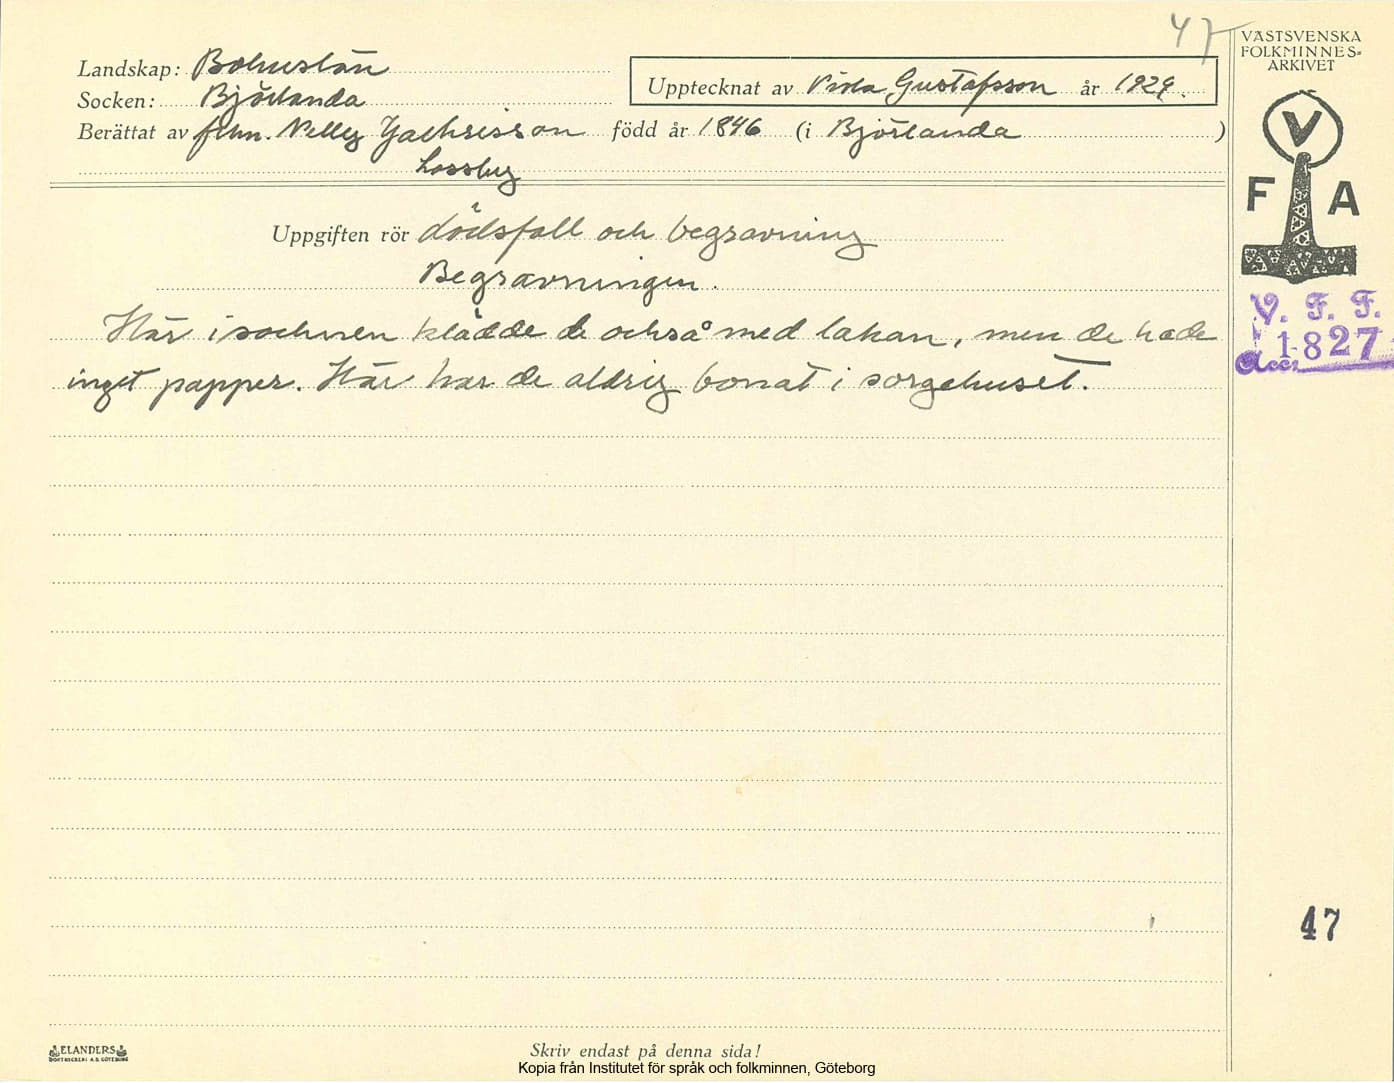 47
VÄSTSVENSKA
FOLKMINNES-
ARKIVET
Landskap: Bohuslän
Socken: Björlanda
Upptecknat av Viola Gustafsson år 1929.
Berättat av frkn. Nelly Zachrisson född år 1846 (i Björlanda )
Lossby
V
F A
Uppgiften rör dödsfall och begravning
Begravningen.
V. F. F.
1827
Acc.
Här i socknen klädde de också med lakan, men de hade
inget papper. Här har de aldrig bonat i sorgehuset.
47
ELANDERS
BOKTRYCKERI A.B. GÖTEBORG
Skriv endast på denna sida!
Kopia från Institutet för språk och folkminnen, Göteborg